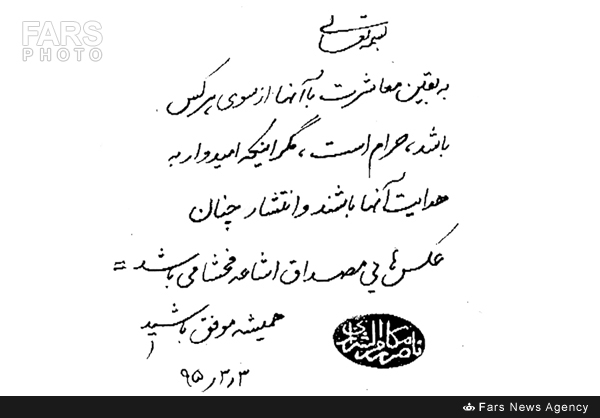 FARS
PHOTO
بسمه تعالی
به یقین معاشرت با آنها از سوی هر کس
باشد، حرام است، مگر اینکه امیدوار به
هدایت آنها باشند و انتشار چنان
عکس هایی مصداق اشاعه فحشا می باشد =
همیشه موفق باشید
ناصر مکارم الشیرازی
۹۵ر۳ر۳
Fars News Agency